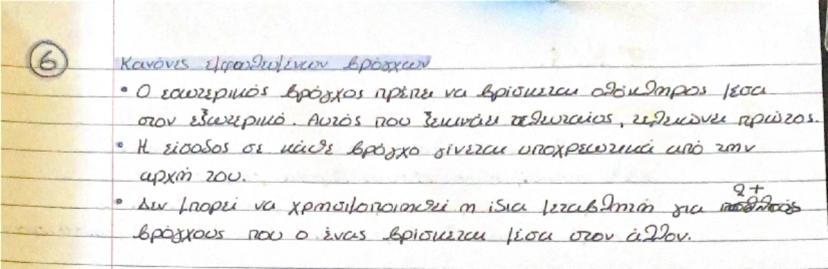 6
Κανόνες εμφωλευμένων βρόγχων
• Ο εσωτερικός βρόγχος πρέπει να βρίσκεται ολόκληρος μέσα
στον εξωτερικό. Αυτός που ξεκινάει τελευταίος, τελειώνει πρώτος.
• Η είσοδος σε κάθε βρόγχο γίνεται υποχρεωτικά από την
αρχή του.
• Δεν μπορεί να χρησιμοποιηθεί η ίδια μεταβλητή για 2+
βρόγχους που ο ένας βρίσκεται μέσα στον άλλον.